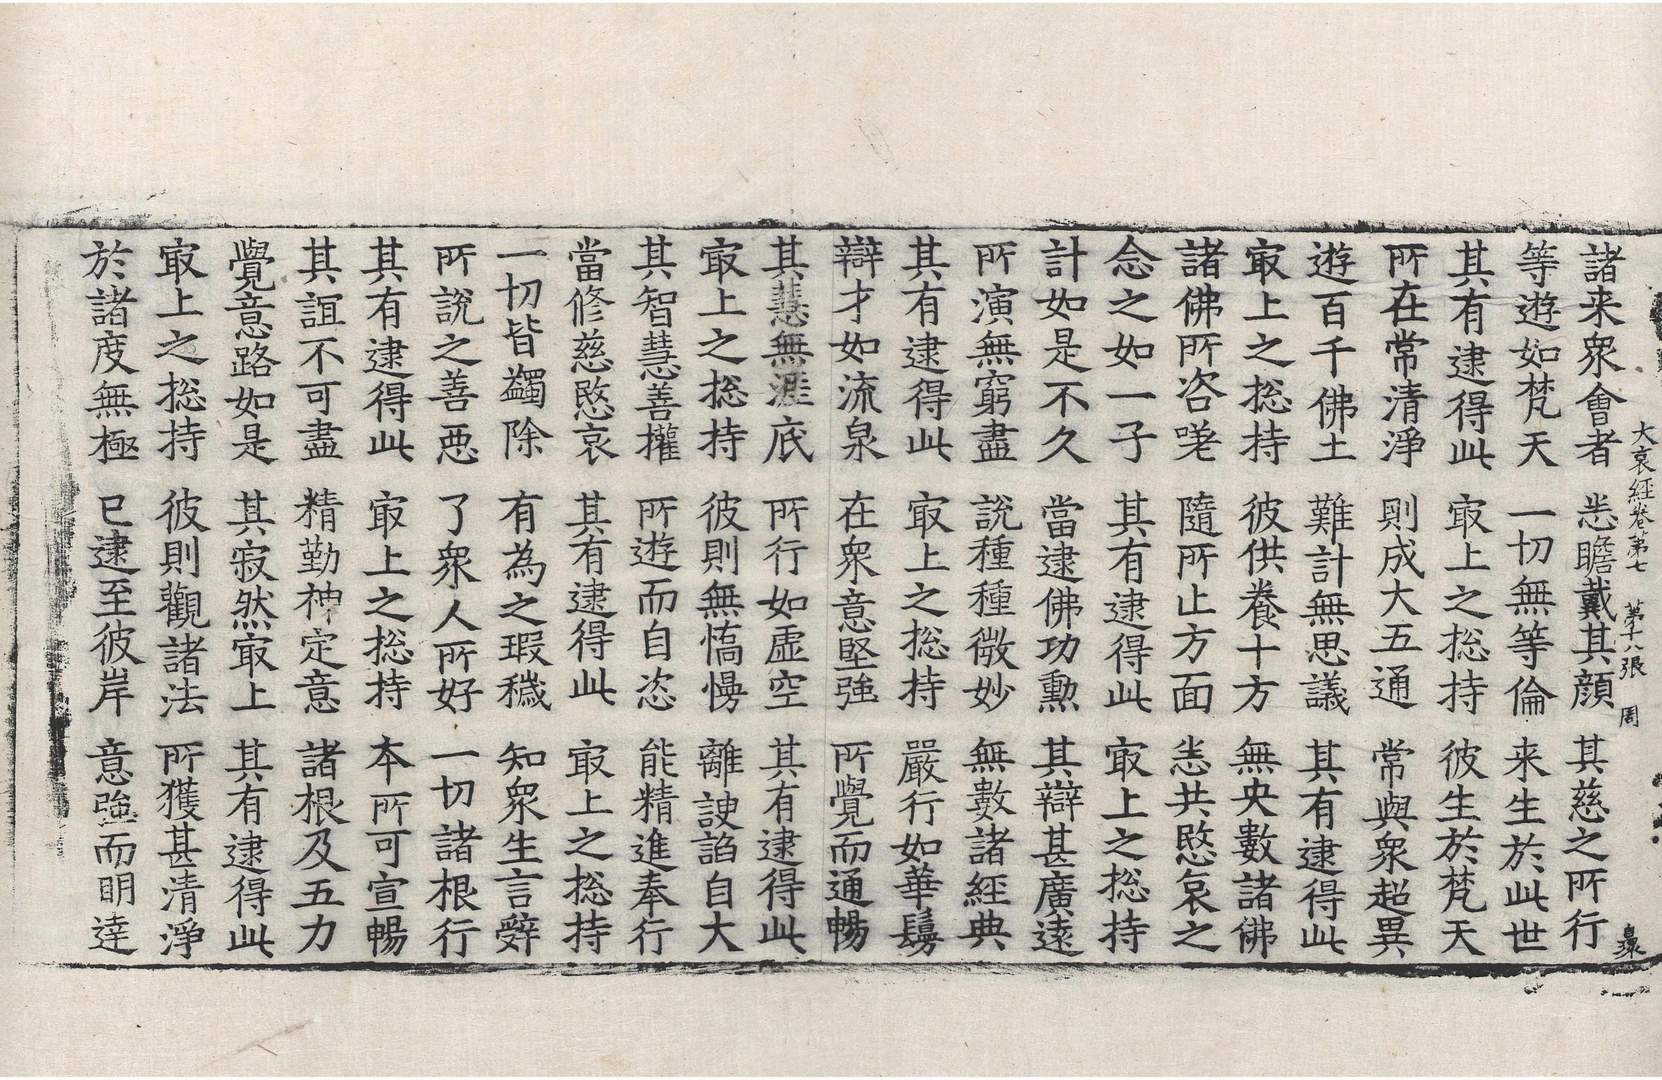 大哀經卷第七 第十八張 周
諸来衆會者 悉瞻戴其顔 其慈之所行
等遊如梵天 一切無等倫 来生於此世
其有逮得此 㝡上之捴持 彼生於梵天
所在常清淨 則成大五通 常與衆超異
遊百千佛土 難計無思議 其有逮得此
㝡上之捴持 彼供養十方 無央數諸佛
諸佛所咨嗟 隨所止方面 悉共愍哀之
念之如一子 其有逮得此 㝡上之捴持
計如是不久 當逮佛功勲 其辯甚廣遠
所演無窮盡 說種種微妙 無數諸經典
其有逮得此 㝡上之捴持 嚴行如華鬘
辯才如流泉 在衆意堅強 所覺而通暢
其慧無涯底 所行如虛空 其有逮得此
㝡上之捴持 彼則無憍慢 離諛諂自大
其智慧善權 所遊而自恣 能精進奉行
當修慈愍哀 其有逮得此 㝡上之捴持
一切皆蠲除 有為之瑕穢 知衆生言辭
所說之善惡 了衆人所好 一切諸根行
其有逮得此 㝡上之捴持 本所可宣暢
其誼不可盡 精勤神定意 諸根及五力
覺意路如是 其寂然㝡上 其有逮得此
㝡上之捴持 彼則觀諸法 所獲甚清淨
於諸度無極 已逮至彼岸 意強而明達